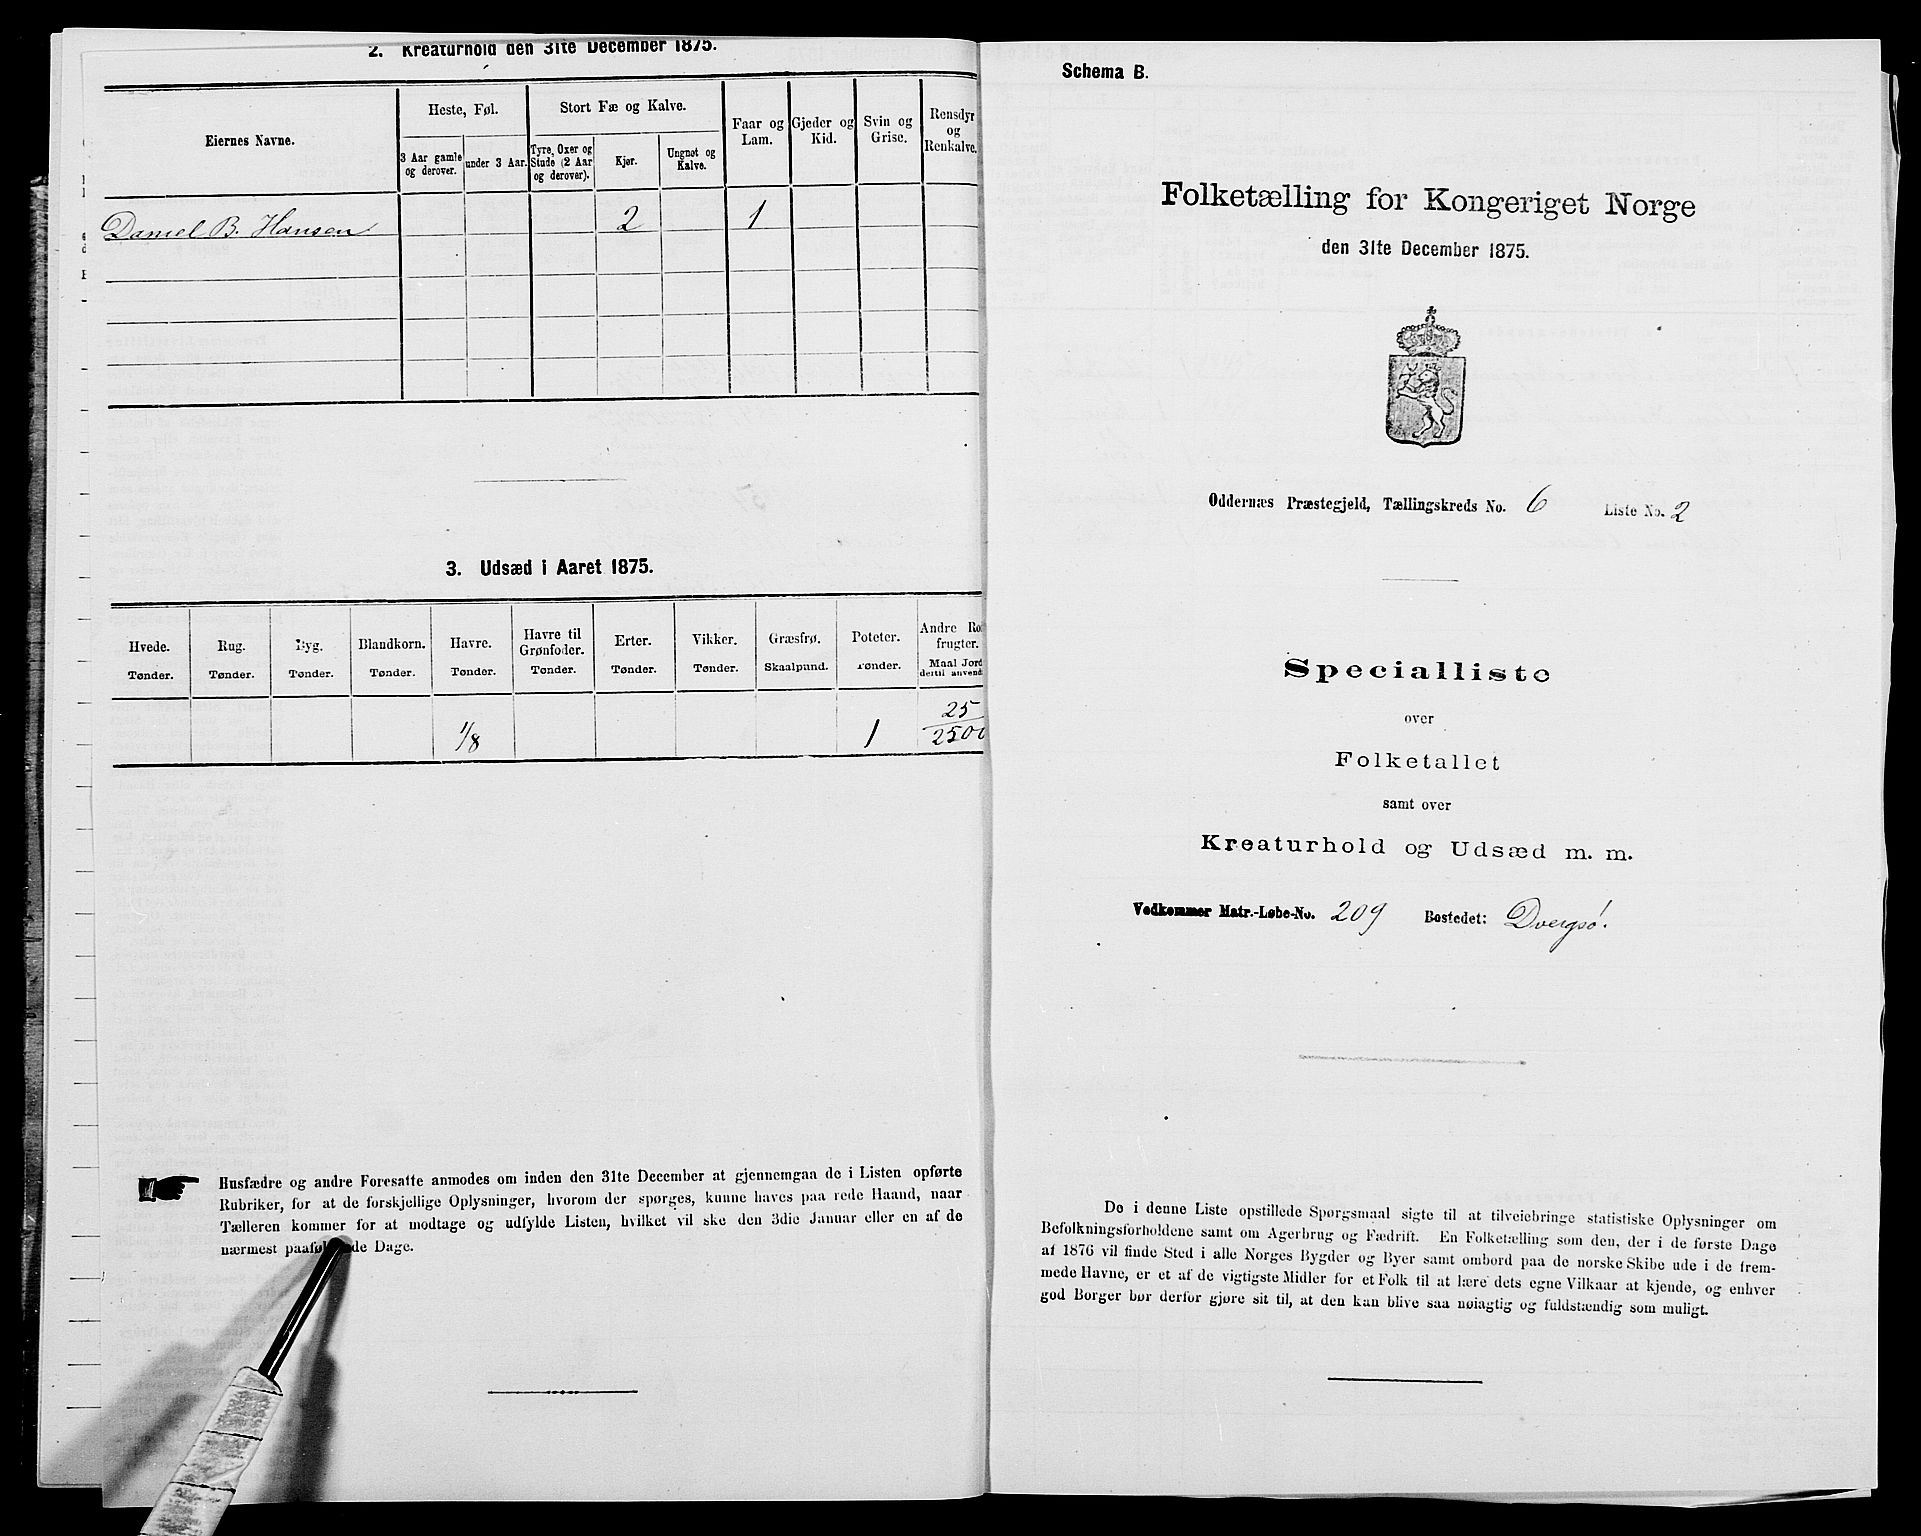 2. Kreaturhold den 31te December 1875.
Eiernes Navne.
Heste, Føl.
Stort Fæ og Kalve.
Faar og Lam.
Gjeder og Kid.
Svin og Grise.
Rensdyr og Renkalve.
3 Aar gamle og derover.
under 3 Aar.
Tyre, Oxer og Stude (2 Aar og derover).
Kjør.
Ungnøt og Kalve.
Daniel B. Hansen 2 1
3. Udsæd i Aaret 1875.
Hvede. Rug. Byg. Blandkorn. Havre. Havre til Grønfoder. Erter. Vikker. Græsfrø. Poteter. Andre Rod frugter.
Tønder. Tønder. Tønder. Tønder. Tønder. Tønder. Tønder. Tønder. Skaalpund. Tønder. Maal Jord dertil anvendt
1/8 1 25/2500
Husfædre og andre Foresatte anmodes om inden den 31te December at gjennemgaa de i Listen opførte
Rubriker, for at de forskjellige Oplysninger, hvorom der spørges, kunne haves paa rede Haand, naar
Tælleren kommer for at modtage og udfylde Listen, hvilket vil ske den 3die Januar eller en af de
nærmest Dage.
Schema B.
Folketælling for Kongeriget Norge
den 31te December 1875.
Oddernæs Præstegjeld, Tællingskreds No. 6 Liste No. 2
Specialliste
over
Folketallet
samt over
Kreaturhold og Udsæd m. m.
Vedkommer Matr.-Løbe-No. 209 Bostedet: Dvergsø.
De i denne Liste opstillede Spørgsmaal sigte til at tilveiebringe statistiske Oplysninger om
Befolkningsforholdene samt om Agerbrug og Fædrift. En Folketælling som den, der i de første Dage
af 1876 vil finde Sted i alle Norges Bygder og Byer samt ombord paa de norske Skibe ude i de frem-
mede Havne, er et af de vigtigste Midler for et Folk til at lære dets egne Vilkaar at kjende, og enhver
god Borger bør derfor gjøre sit til, at den kan blive saa nøiagtig og fuldstændig som muligt.